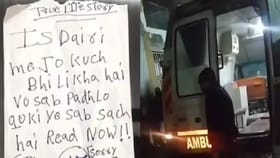 True Life Story
Is Dairi
me Jo kuch
Bhi Likha hai
Vo sab Padhlo
quki ye sab sach
hai Read Now!!
Sorry
AMBU